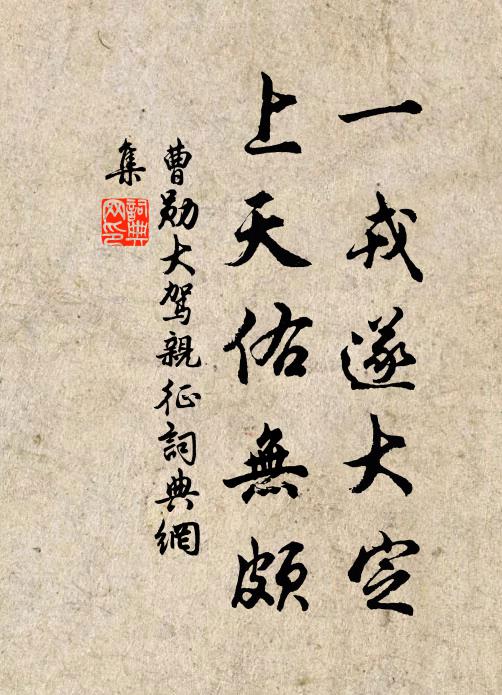 一戎遂大定
上天佑無頗
曹勛大駕親征詞典網
集
詞典網印